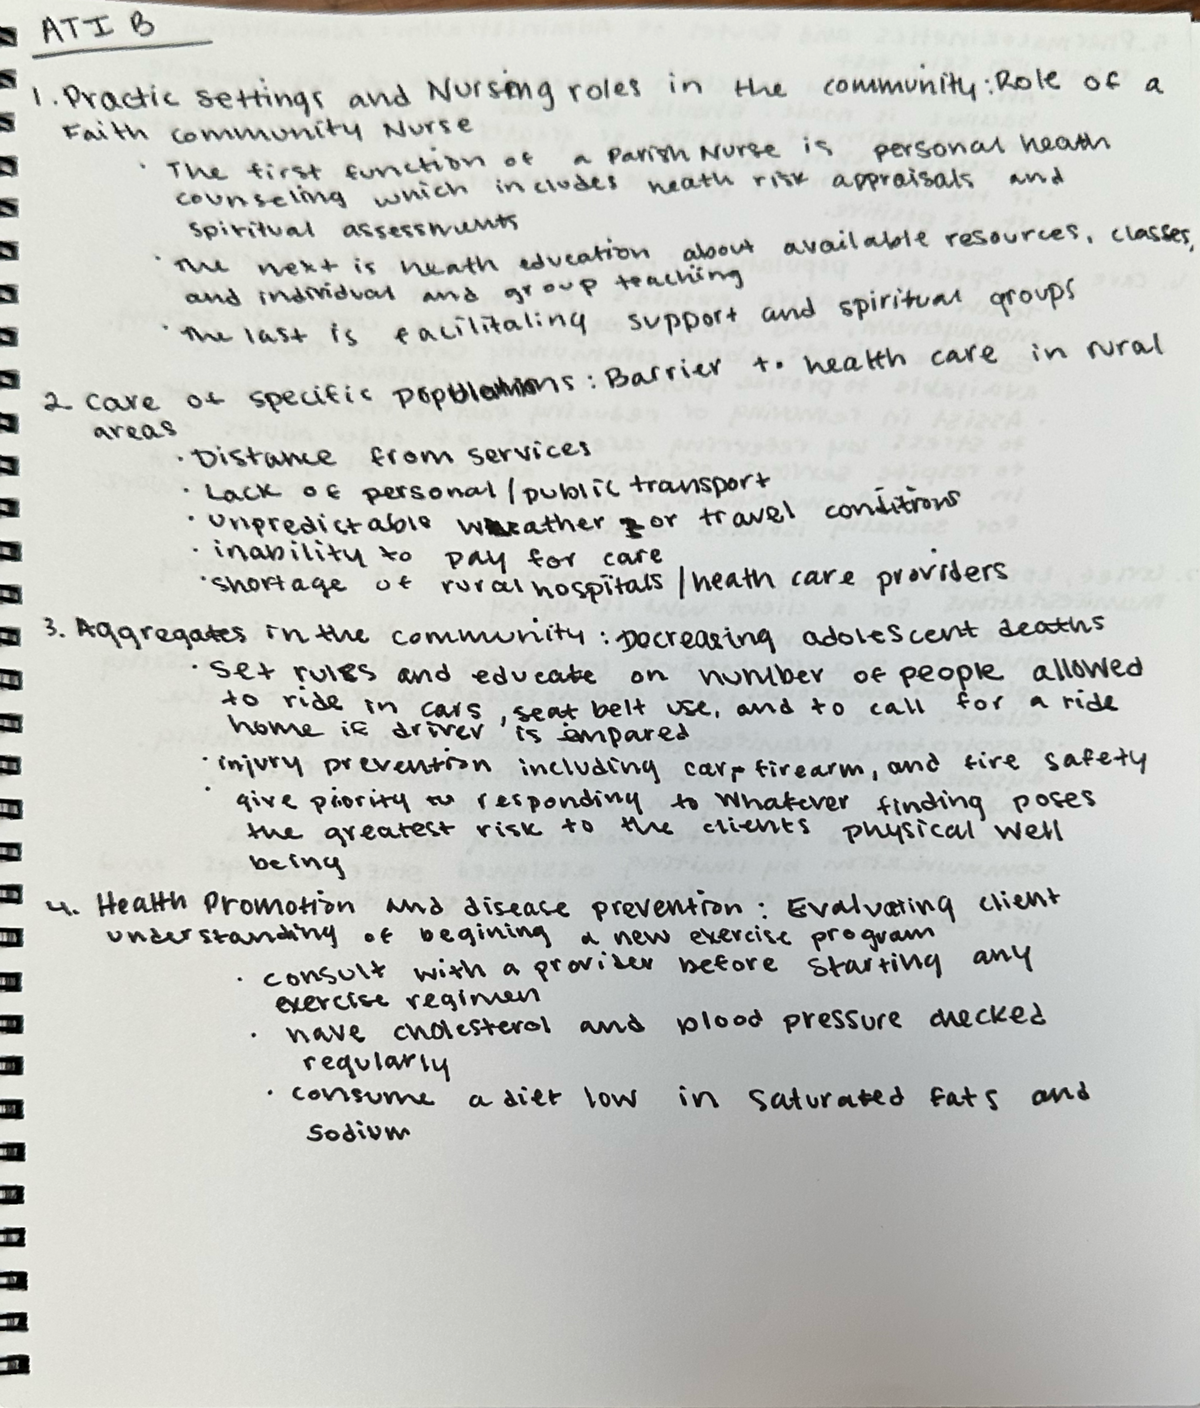 ATI B
1. Practic settings and Nursing roles in the community: Role of a
Faith community Nurse
· The first function of a Parish Nurse is personal heath
counseling which includes heath risk appraisals and
spiritual assessments
· The next is heath education about available resources, classes,
and individual and group teaching
· The last is facilitaling support and spiritual groups
2. Care of specific populations: Barrier to health care in rural
areas
· Distance from services
· Lack of personal/public transport
· unpredictable weather or travel conditions
· inability to pay for care
· shortage of rural hospitals/heath care providers
3. Aggregates in the community: Decreasing adolescent deaths
· Set rules and educate on number of people allowed
to ride in cars, seat belt use, and to call for a ride
home if driver is impared
· injury prevention including car, firearm, and fire safety
· give piority to responding to whatever finding poses
the greatest risk to the clients physical well
being
4. Health Promotion and disease prevention: Evaluating client
understanding of begining a new exercise program
· consult with a provider before starting any
exercise regimen
· have cholesterol and blood pressure checked
regularly
· consume a diet low in saturated fats and
sodium